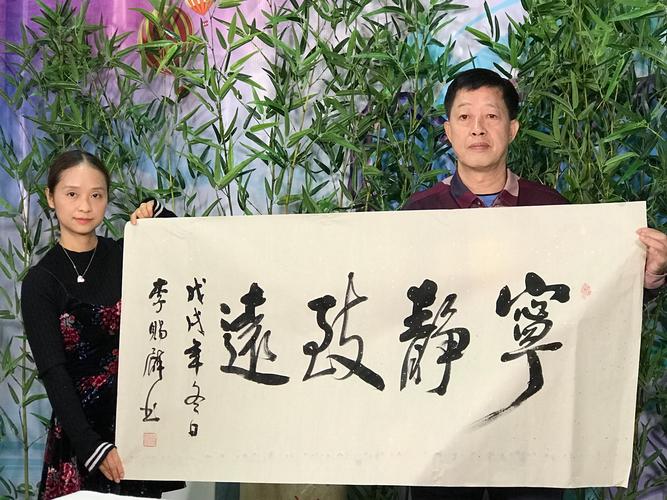 寧靜致遠
戊戌年冬日
李賜麟书